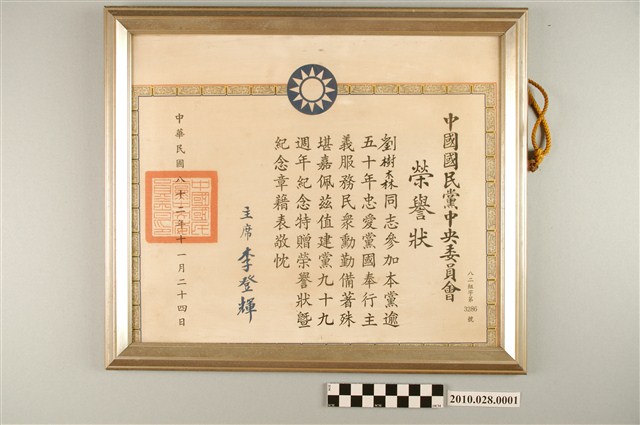 中國國民黨中央委員會
榮譽狀
劉樹森同志參加本黨逾
五十年忠愛黨國奉行主
義服務民衆勳勤備著殊
堪嘉佩茲值建黨九十九
週年紀念特贈榮譽狀暨
紀念章藉表敬忱
主席 李登輝
中華民國八十二年十一月二十四日
八二組字第3286號
2010.028.0001